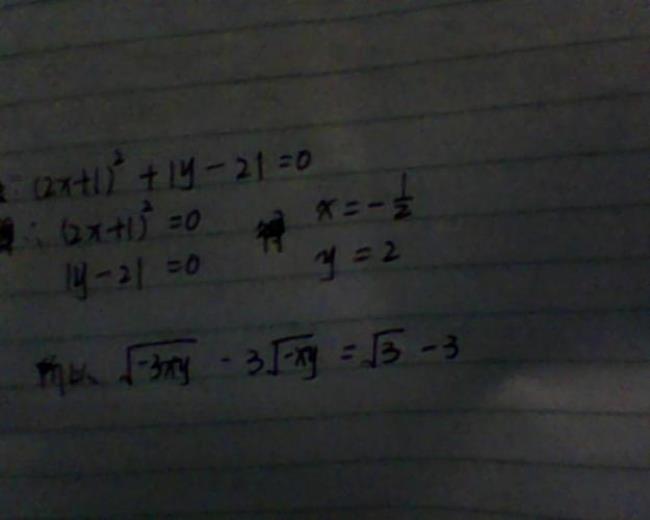 (2x+1)² + |y-2| = 0
∴ (2x+1)² = 0 得 x = -1/2
|y-2| = 0 y = 2
所以、√-3xy - 3√-xy = √3 - 3